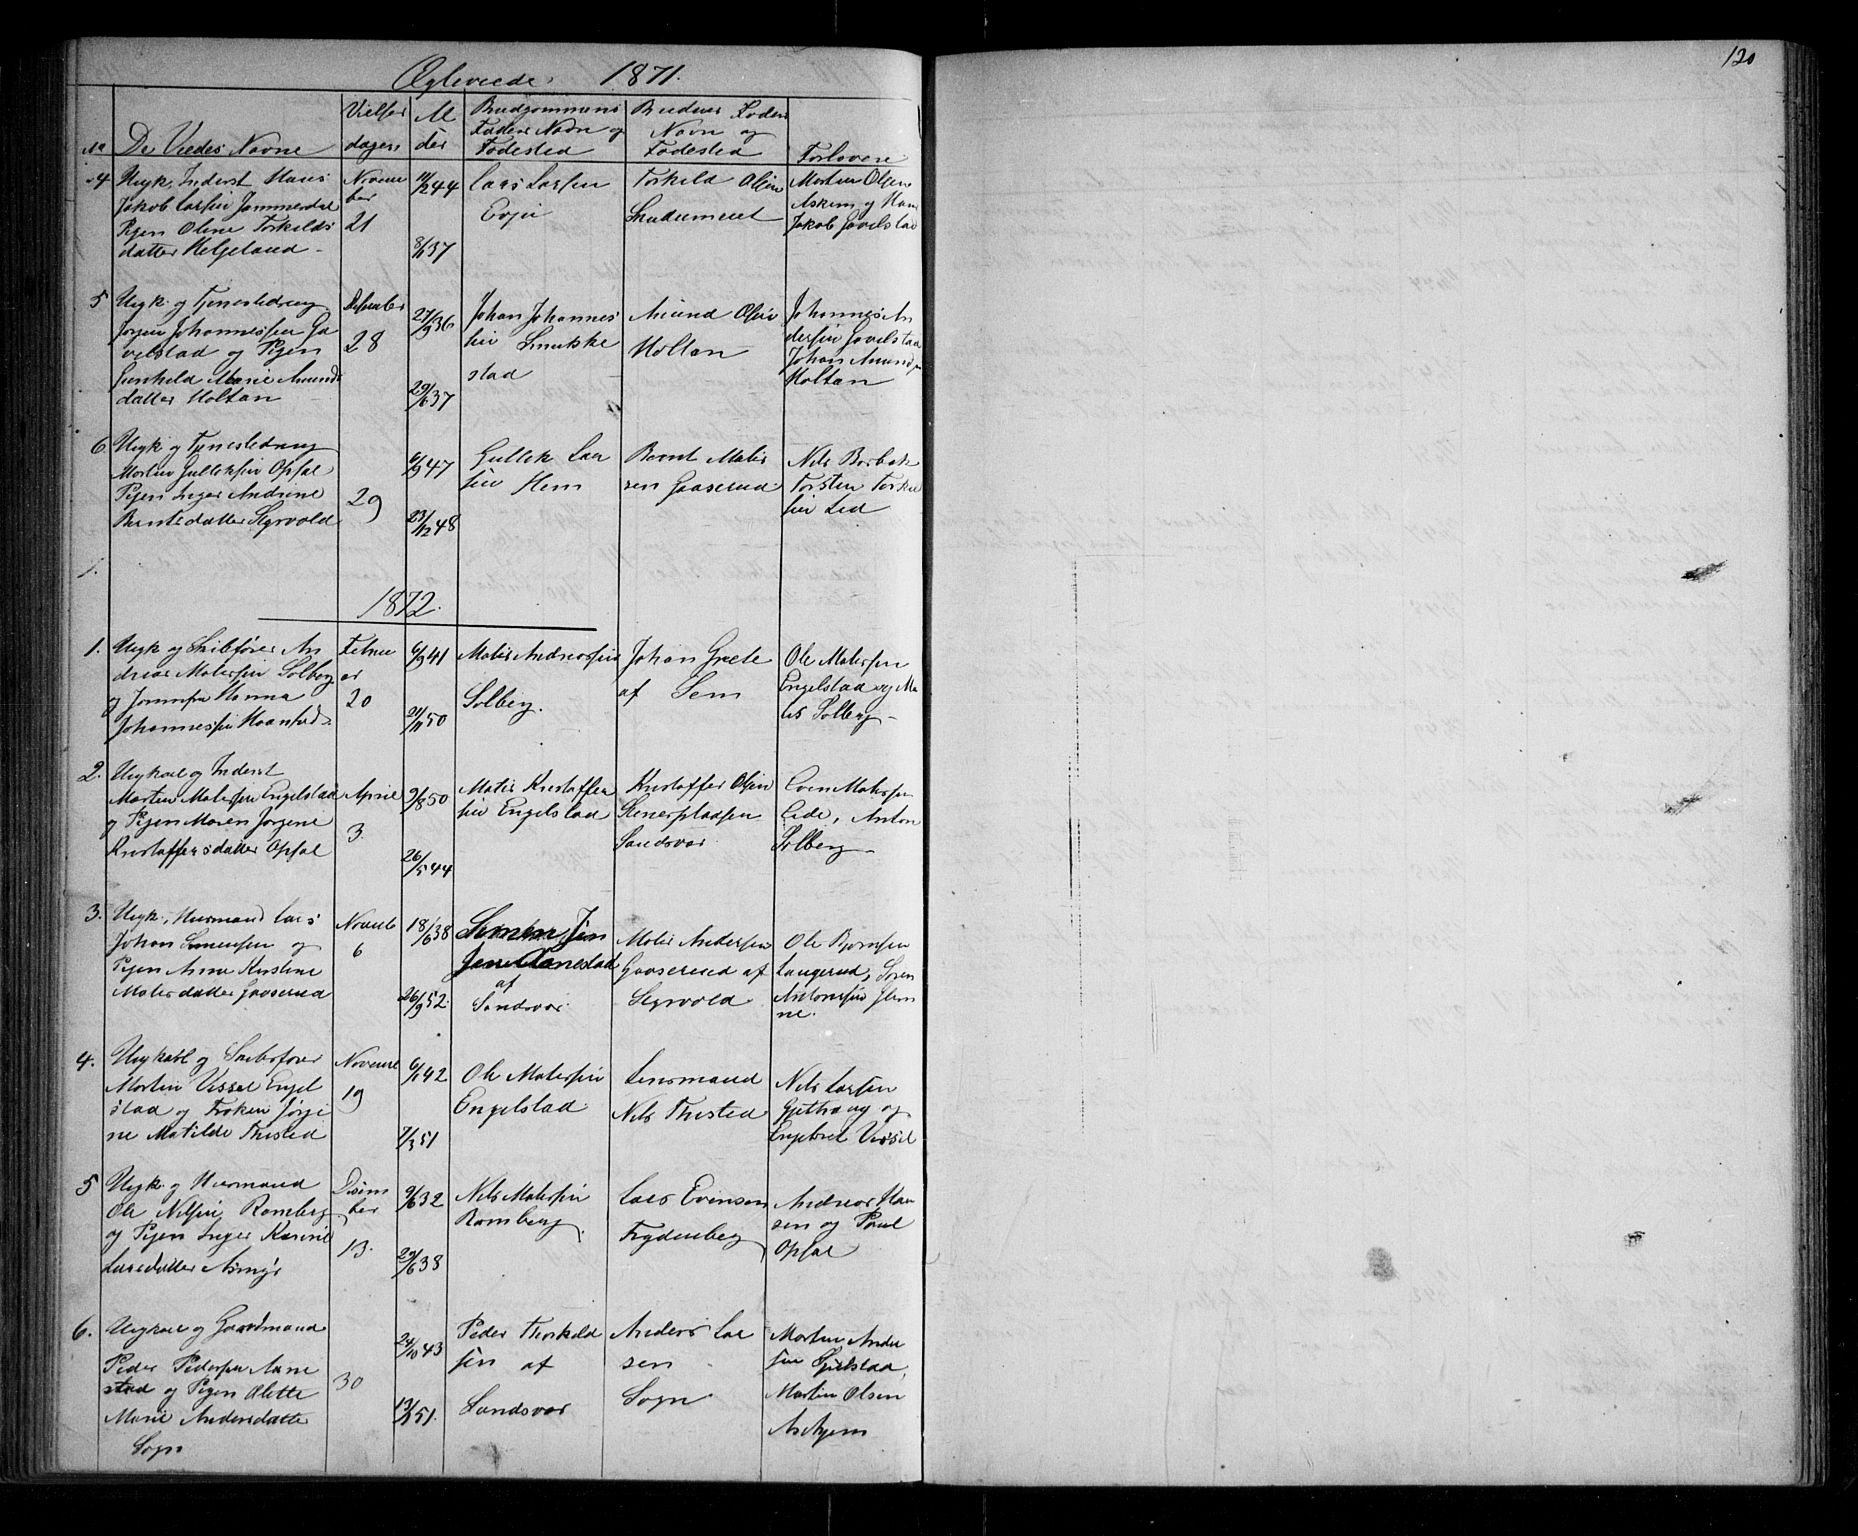 120
Ægteviede 1871.
No
De Viedes Navne
Vielses
dagen
Al
der
Brudgommens
Faders Navn og
Fødested
Brudens Faders
Navn og
Fødested
Forlovere
4
Ungk. Inderst Hans
Jakob Larsen Jammerdal
Pigen Oline Torkilds
datter Helgeland
Novem
ber
21
44
37
Lars Larsen
Evju
Torkild Olsen
Morten Olsen
Askem og Hans
Jakob Gavelstad
5
Ungk. og Tjenestedreng
Jørgen Johannessen Ga
velstad og Pigen
Gunhild Marie Amunds
datter Holtan
December
28
27/9 36
29/6 37
Johan Johannes
sen
stad
Amund Olsen
Holtan
Johannes An
dersen Gavelstad
Johan Amundsen
Holtan
6.
Ungk. og Tjenestedreng
Morten Gulleksen Opsal
Pigen Inger Andrine
Berntsdatter Sgrvold
29
6/9 47
23/12 48
Gullek Lar
sen Hem
Bernt Matis
sen Gaaserud
Nils Borbak
Torsten Torkel
sen Lid
1.
1872.
1.
Ungk og Skibsfører An
dreas Matissen Solberg
og Jomfru Hanna
Johannessen
Februar
20
6/9 41
50
Matis Andreassen
Solberg.
Johan Grete
af Sem
Ole Matissen
Engelstad og Ma
tis Solberg
2.
Ungkarl og Inderst
Morten Matissen Engelstad
og Pigen Maren Jørgene
Kristoffersdatter Opsal
April
3.
9/8 50
26/5 44
Matis Kristoffer
sen Engelstad
Kristoffer Olsen
Sandsvær
Even Matissen
Eide, Anton
Solberg
3.
Ungk, Husmand Lars
Johan Simensen og
Pigen Anne Kirstine
Matisdatter Gaaserud
Novemb
6
18/6 38
26/9 52.
Simen Jen
af
Sandsvær
Matis Andersen
Gaaserud af
Sgrvold
Ole Bjørnsen
Laugerud, Søren
Antonsen
ne.
4.
Ungkarl og Skibsfører
Morten Vissel Engel
stad og Frøken Jørgi
ne Matilde Thisted
Novembr
19
42
7/3 51
Ole Matissen
Engelstad
Lensmand
Nils Thisted
Nils Larsen
og
Engebret Vissel
5
Ungk. og Husmand
Ole Nilsen Ramberg
og Pigen Inger Karine
Larsdatter
Decem
ber
13.
9/6 32
29/6 38
Nils Matissen
Ramberg
Lars Evensen
Frydenberg
Andreas Han
sen og Paul
Opsal
6.
Ungkarl og Gaardmand
Peder Pedersen Aane
stad og Pigen Olette
Marie Andersdatter
Sogn
30
24/10 43
51.
Peder Thorkild
sen af
Sandsvær
Anders Lar
sen
Sogn
Morten Ander
sen Gjelstad,
Martin Olsen
Askjem